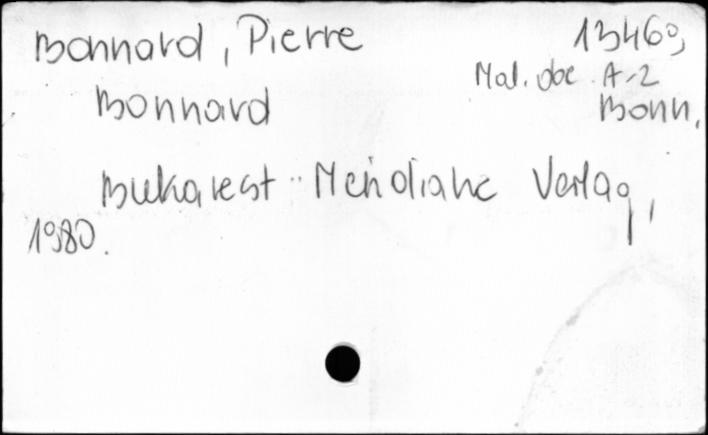 Bonnard, Pierre 13460,
Mal. doc. A-2
Bonnard Bonn.
Bukarest: Meridiane Verlag,
1980.